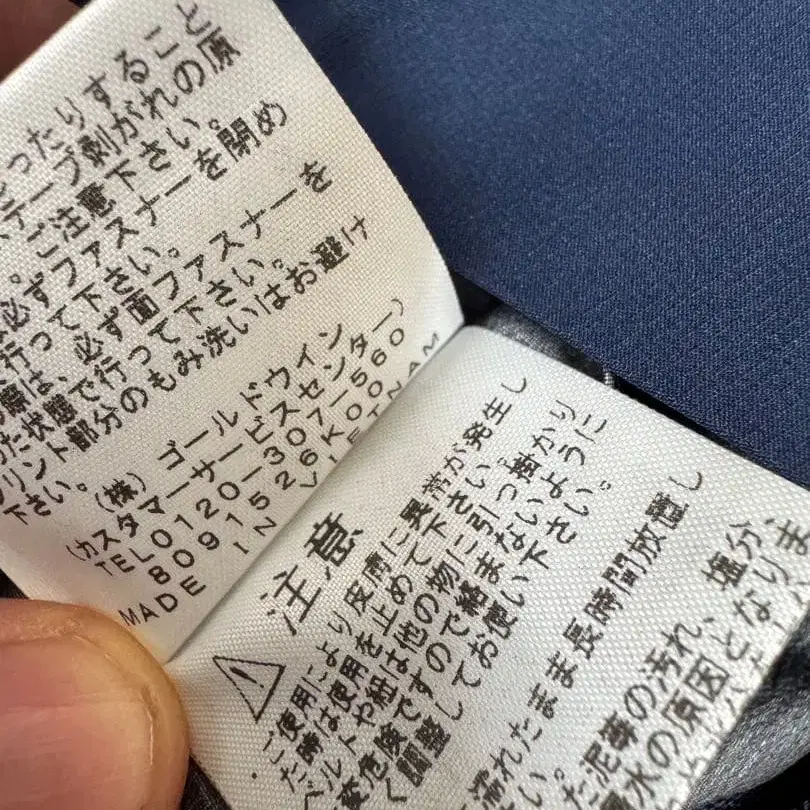 ったりすること
テープ剥がれの原
。ご注意下さい。
必ずファスナーを閉め
行って下さい。
際は、必ず面ファスナーを
た状態で行って下さい。
リント部分のもみ洗いはお避け
下さい。
(株) ゴールドウイン
(カスタマーサービスセンター)
TEL0120-307-560
8091526K00
MADE IN VIETNAM
注意
ご使用により皮膚に異常が発生し
た時は使用を止めて下さい。
ベルトや紐は他の物に引っ掛かり
変危険ですので絡まないように
く調整してお使い下さい。
濡れたまま長時間放置し
い。
た泥等の汚れ、塩分、
水の原因となりま